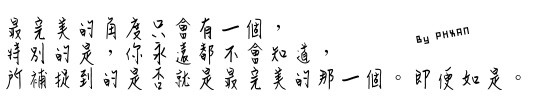 最完美的角度只會有一個，
By PHXAN
特別的是，你永遠都不會知道，
所補捉到的是否就是最完美的那一個。即便如是。